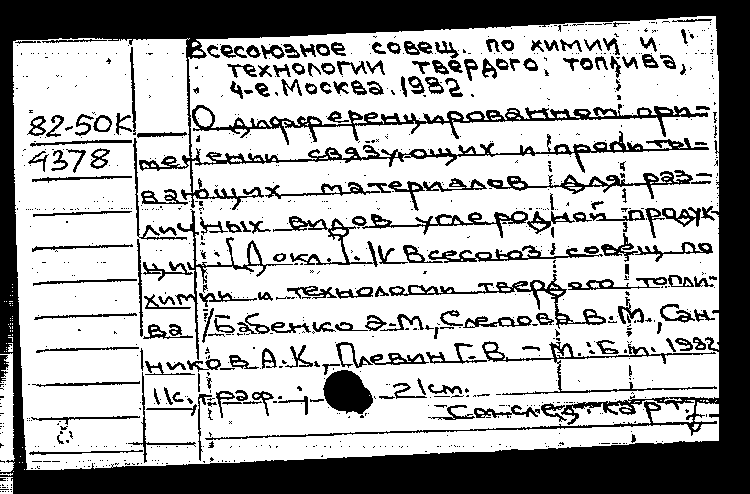 Всесоюзное совещ. по химии и
технологии твердого топлива,
4-е. Москва. 1982.
82-50К О дифференцированном при-
4378 менении связующих и пропиты-
вающих материалов для раз-
личных видов углеродной продук-
ции: [Докл.]. IV Всесоюз. совещ. по
химии и технологии твердого топли-
ва / Бабенко Э.М., Слепова В.М., Сан-
ников А.К., Плевин Г.В. - М.: Б.и., 1982
11с., граф.; 21см.
См. след. карт.